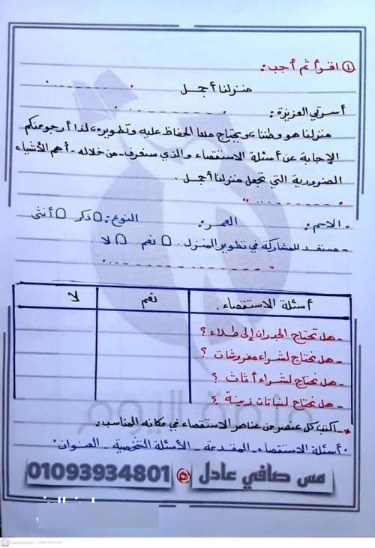 ① اقرأ ثم أجب:
منزلنا أجمل
أسرتي العزيزة:
منزلنا هو وطننا، ويحتاج منا الحفاظ عليه وتطويره، لذا أرجو منكم
الإجابة عن أسئلة الاستقصاء والذي سنعرف من خلاله أهم الأشياء
الضرورية التي تجعل منزلنا أجمل.
- الاسم: العمر: النوع: ذكر أنثى
- مستعد للمشاركة في تطوير المنزل. نعم لا
أسئلة الاستقصاء. نعم لا
- هل تحتاج الجدران إلى طلاء؟
- هل نحتاج لشراء مفروشات؟
- هل نحتاج لشراء أثاث؟
- هل نحتاج لنباتات زينة؟
* اكتب كل عنصر من عناصر الاستقصاء في مكانه المناسب:
"أسئلة الاستقصاء - المقدمة - الأسئلة الشخصية - العنوان"
مس صافي عادل @ 01093934801